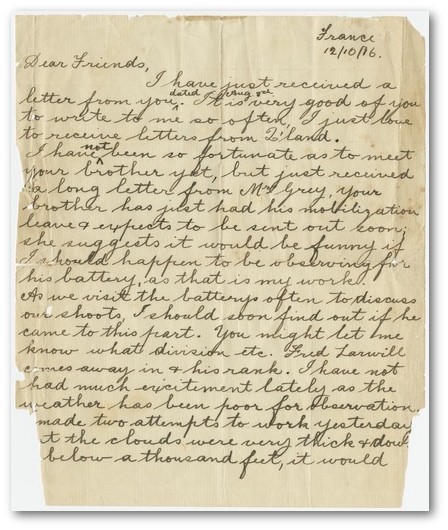 France
12/10/16.
Dear Friends,
I have just received a
letter from you dated Aug 3rd. It is very good of you
to write to me so often, I just love
to receive letters from Q'land.
I have not been so fortunate as to meet
your brother yet, but just received
a long letter from Mrs Grey, your
brother has just had his mobilization
leave & expects to be sent out soon;
she suggests it would be funny if
I should happen to be observing for
his battery, as that is my work.
As we visit the batterys often to discuss
our shoots, I should soon find out if he
came to this part. You might let me
know what division etc. Fred Larwill
comes away in & his rank. I have not
had much excitment lately as the
weather has been poor for observation.
made two attempts to work yesterday
t the clouds were very thick & dow
below a thousand feet, it would